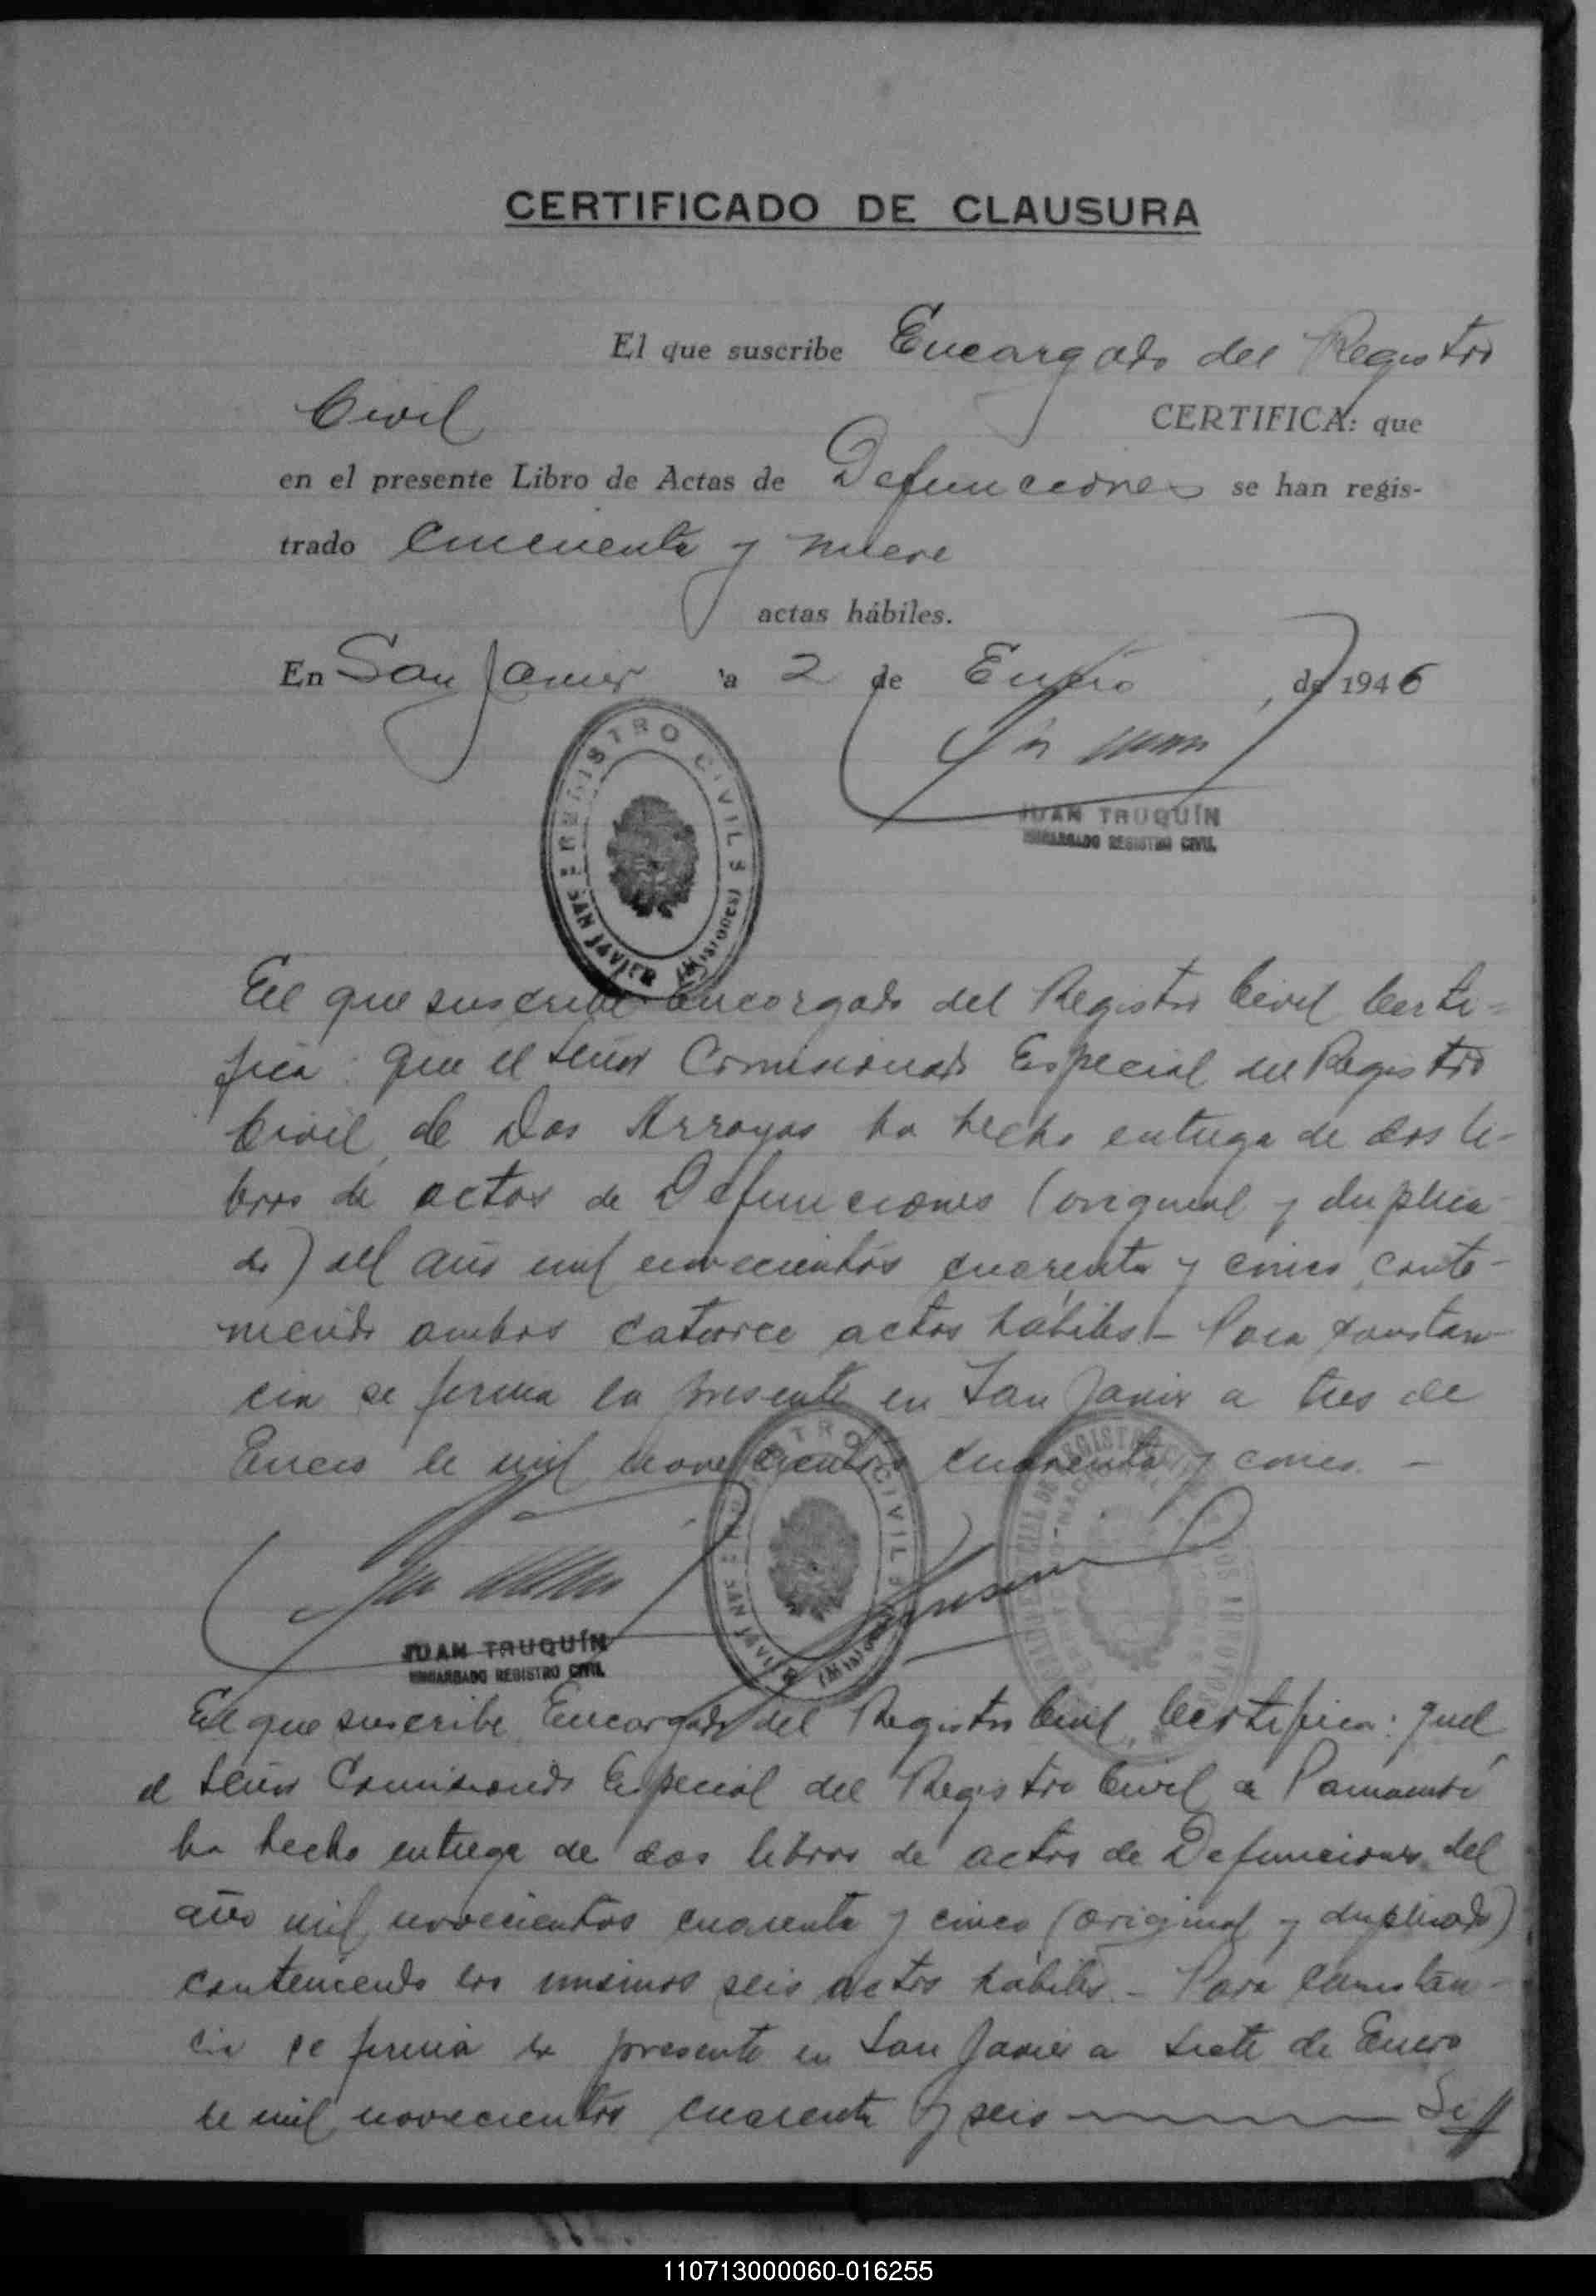 CERTIFICADO DE CLAUSURA
El que suscribe Encargado del Registro
Civil CERTIFICA: que
en el presente Libro de Actas de Defunciones se han regis-
trado cincuenta y nueve
actas hábiles.
En San Javier a 2 de Enero de 1946
REGISTRO CIVIL
SAN JAVIER (Misiones)
JUAN TRUQUÍN
ENCARGADO REGISTRO CIVIL
El que suscribe Encargado del Registro Civil Certi-
fica: que el Señor Comisionado Especial del Registro
Civil de Dos Arroyos ha hecho entrega de dos li-
bros de actas de Defunciones (original y duplica-
do) del año mil novecientos cuarenta y cinco, conte-
niendo ambos catorce actas hábiles.- Para constan-
cia se firma la presente en San Javier a tres de
Enero de mil novecientos cuarenta y cinco. -
REGISTRO CIVIL
SAN JAVIER (Misiones)
JUAN TRUQUÍN
ENCARGADO REGISTRO CIVIL
El que suscribe Encargado del Registro Civil, Certifica: que
el Señor Comisionado Especial del Registro Civil de
ha hecho entrega de dos libros de actas de Defunciones del
año mil novecientos cuarenta y cinco (original y duplicado)
conteniendo los mismos seis actas hábiles.- Para constan-
cia se firma la presente en San Javier a siete de Enero
de mil novecientos cuarenta y seis
110713000060-016255